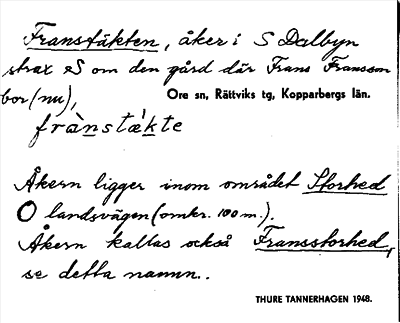 Franstäkten, åker i S Dalbyn
strax S om den gård där Frans Fransson
bor (nu),
Ore sn, Rättviks tg, Kopparbergs län.
frànstæ̀kte
Åkern ligger inom området Storhed
O landsvägen (omkr. 100 m.).
Åkern kallas också Fransstorhed,
se detta namn..
THURE TANNERHAGEN 1948.